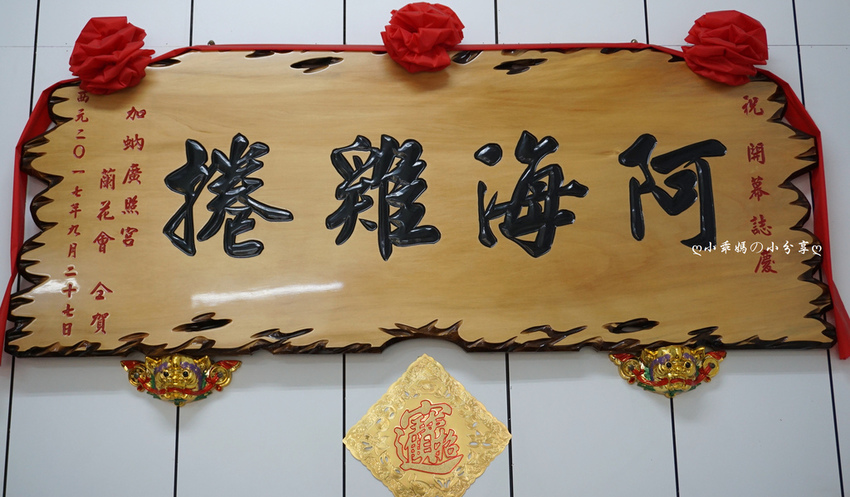 祝開幕誌慶
阿海雞捲
加蚋廣照宮
蘭花會 仝賀
西元二〇一七年九月二十七日
ღ小乖媽の小分享ღ
招財進寶